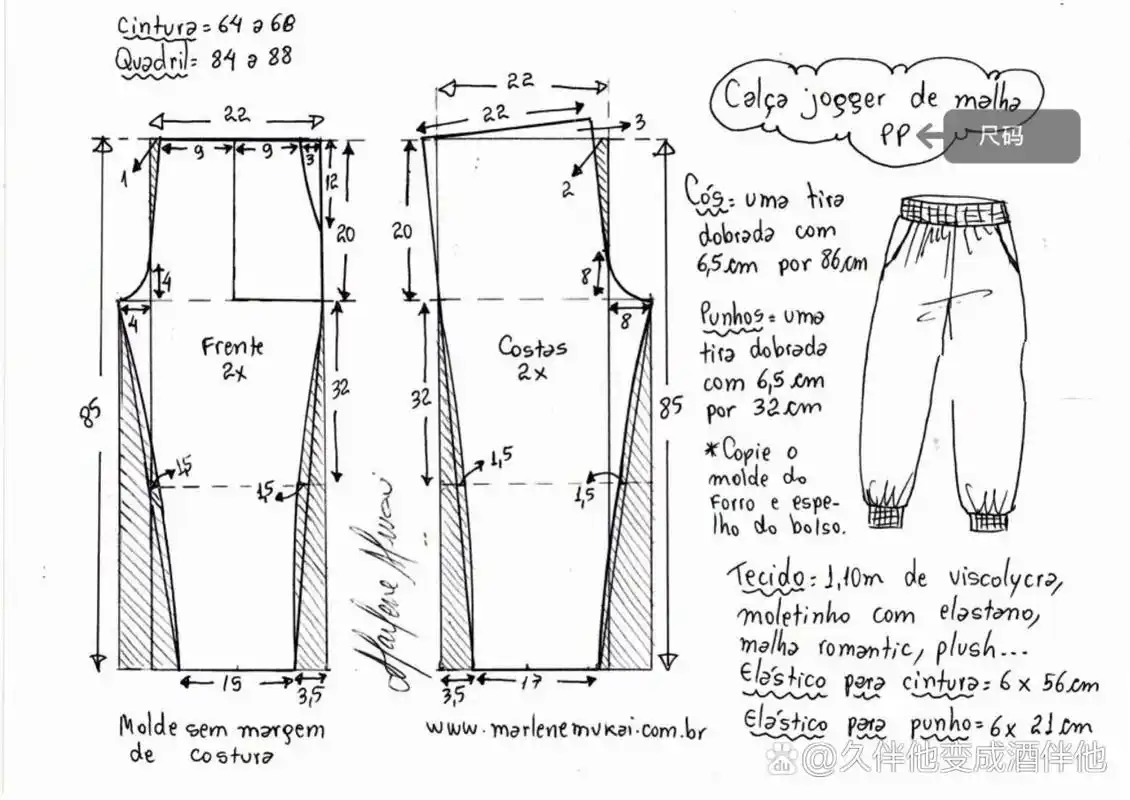 Cintura = 64 a 68
Quadril = 84 a 88
22
9
9
3
1
12
20
4
4
Frente
2x
32
85
1,5
1,5
15
3,5
Molde sem margem
de costura
Marlene Mukai
22
22
3
2
20
8
8
Costas
2x
32
85
1,5
1,5
3,5
17
www.marlenemukai.com.br
Calça jogger de malha
PP
尺码
Cós = uma tira
dobrada com
6,5 cm por 86 cm
Punhos = uma
tira dobrada
com 6,5 cm
por 32 cm
*Copie o
molde do
Forro e espe-
lho do bolso.
Tecido = 1,10m de viscolycra,
moletinho com elastano,
malha romantic, plush...
Elástico para cintura = 6 x 56 cm
Elástico para punho = 6 x 21 cm
du @久伴他变成酒伴他